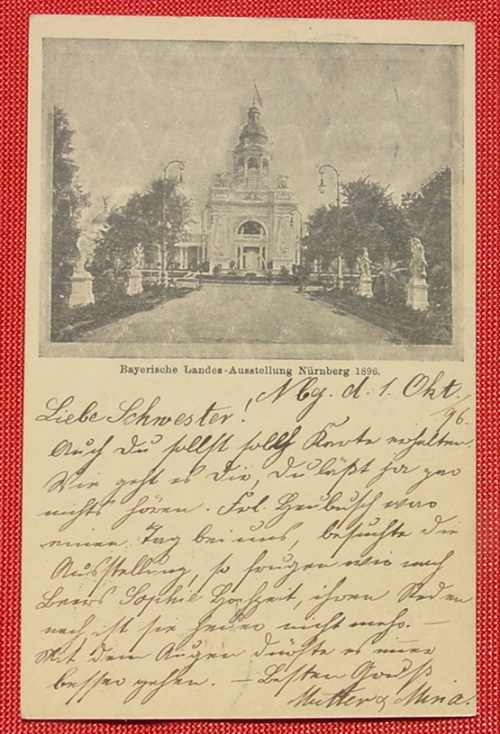 Bayerische Landes-Ausstellung Nürnberg 1896.
Nbg. d. 1. Okt. 96.
Liebe Schwester!
Auch Du sollst solch Karte erhalten.
Wie geht es Dir, Du läßt ja gar
nichts hören. Frl. Heubusch war
einen Tag bei uns, besuchte die
Ausstellung, so frugen wir nach
Beers Sophie Hochzeit, ihren Reden
nach ist sie heuer nicht mehr. –
Mit dem Augen dürfte es immer
besser gehen. – Besten Gruß
Mutter & Mina.